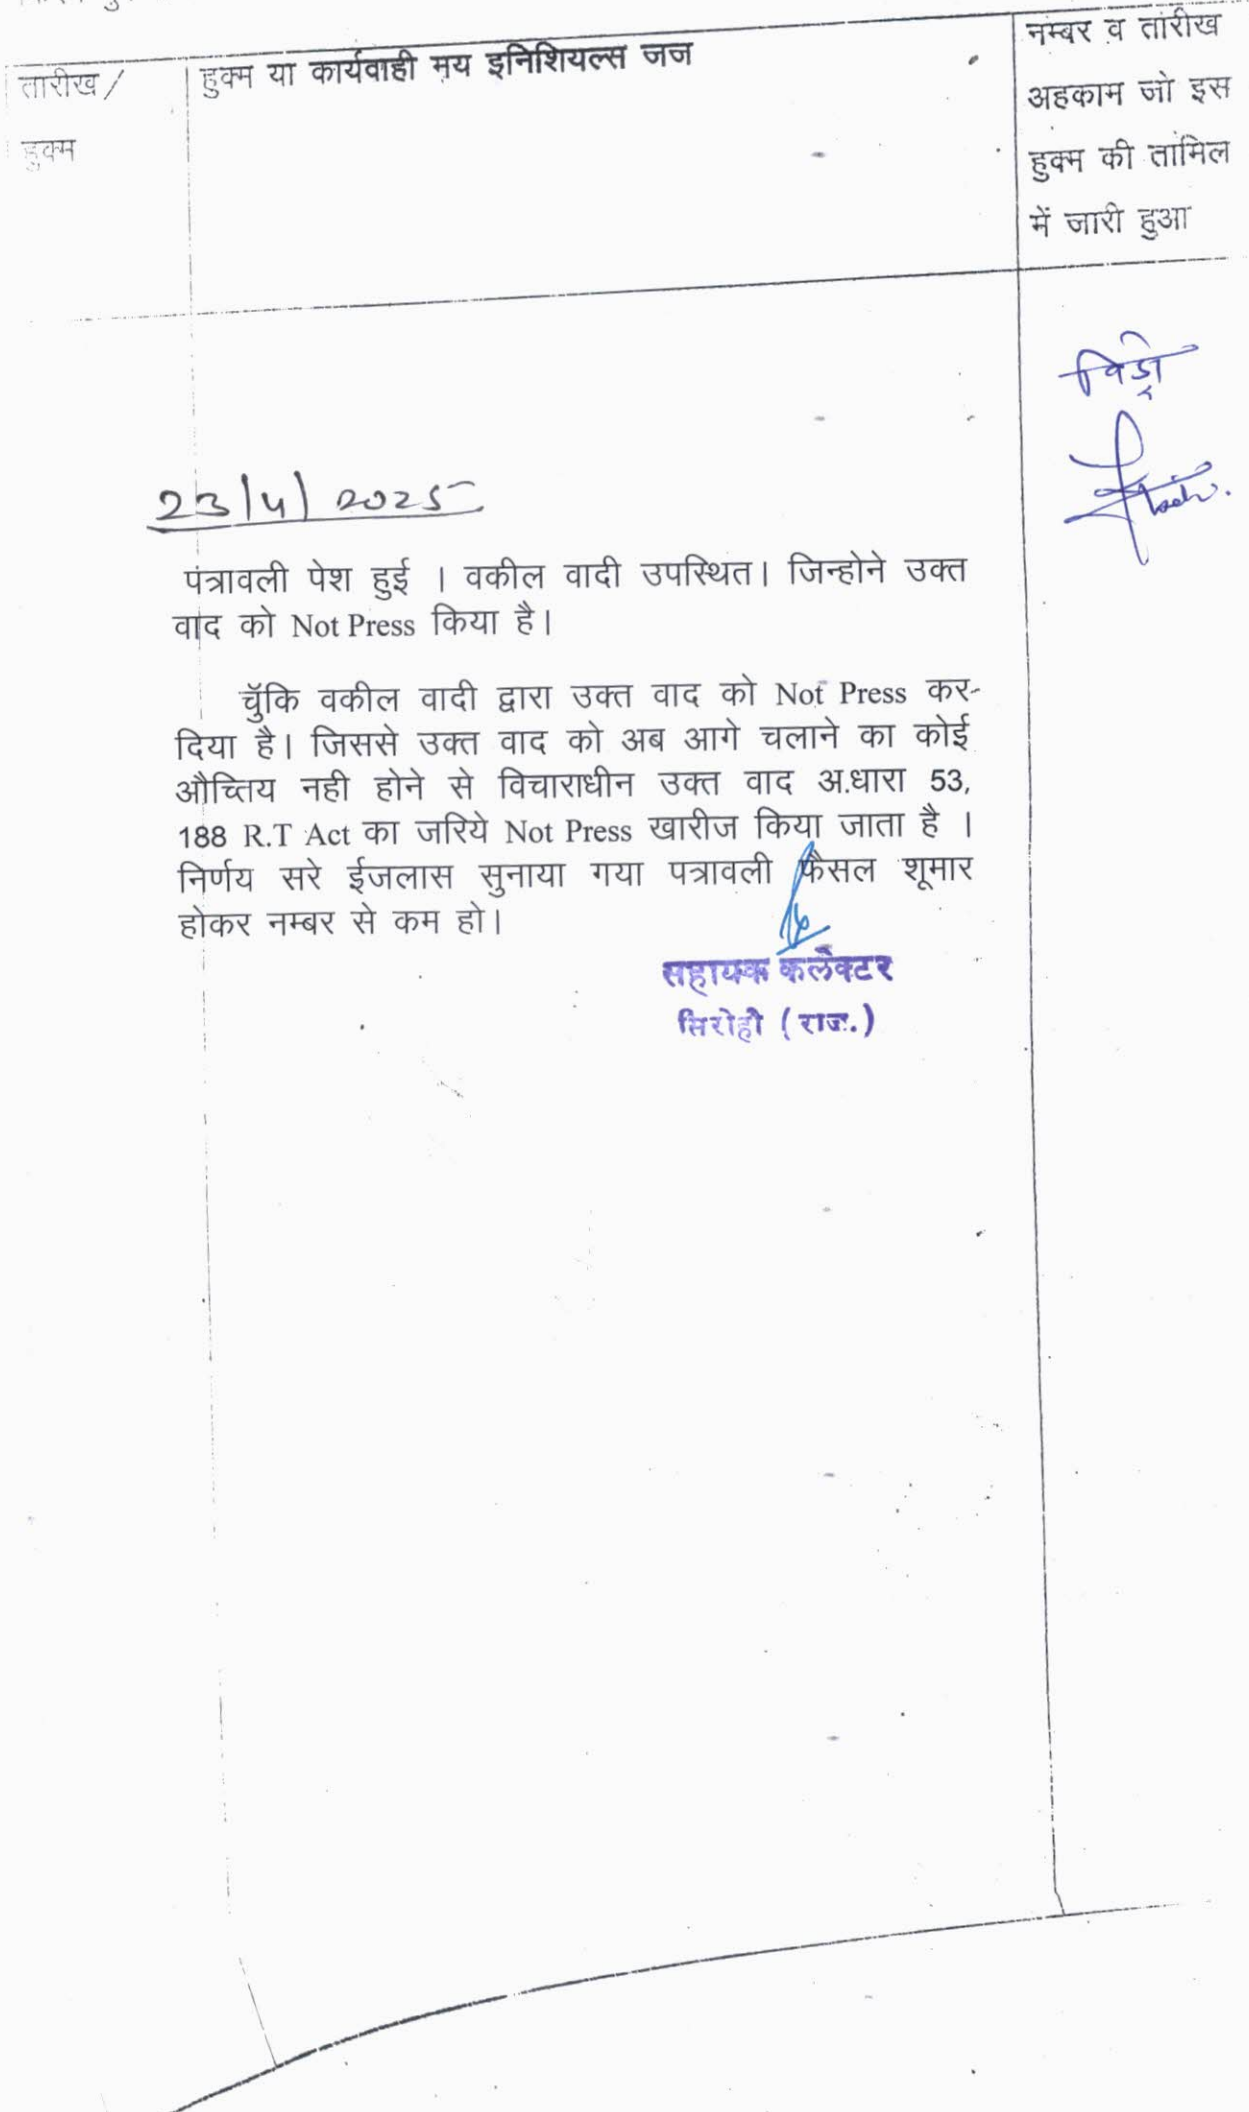 तारीख /
हुक्म
हुक्म या कार्यवाही मय इनिशियल्स जज
नम्बर व तारीख
अहकाम जो इस
हुक्म की तामिल
में जारी हुआ
23/4/2025
पत्रावली पेश हुई । वकील वादी उपस्थित। जिन्होने उक्त
वाद को Not Press किया है।
चुॅकि वकील वादी द्वारा उक्त वाद को Not Press कर-
दिया है। जिससे उक्त वाद को अब आगे चलाने का कोई
औच्तिय नही होने से विचाराधीन उक्त वाद अ.धारा 53,
188 R.T Act का जरिये Not Press खारीज किया जाता है ।
निर्णय सरे ईजलास सुनाया गया पत्रावली फैसल शूमार
होकर नम्बर से कम हो।
सहायक कलेक्टर
सिरोही (राज.)